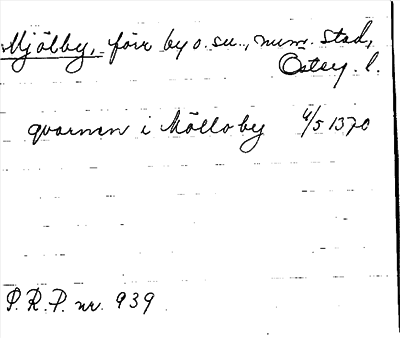 Mjölby, förr by o. sn., num. stad,
Östey. l.
qvarnen i Mölloby 6/5 1370
P. R. P. nr. 939